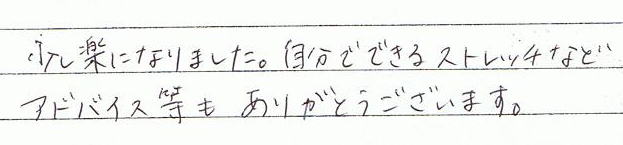 少し楽になりました。自分でできるストレッチなど
アドバイス等も ありがとうございます。